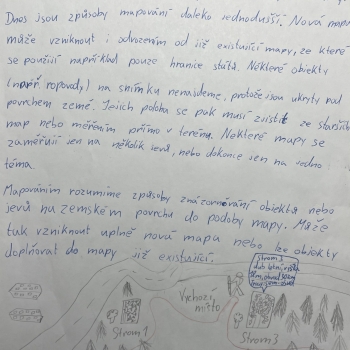 Dnes jsou způsoby mapování daleko jednodušší. Nová mapa
může vzniknout i odvozením od již existující mapy, ze které
se použijí například pouze hranice států. Některé objekty
(např. ropovody) na snímku nenajdeme, protože jsou ukryty pod
povrchem země. Jejich poloha se pak musí zjistit ze starších
map nebo měřením přímo v terénu. Některé mapy se
zaměřují jen na několik jevů, nebo dokonce jen na jedno
téma.
Mapováním rozumíme způsoby znázorňování objektů nebo
jevů na zemském povrchu do podoby mapy. Může
tak vzniknout úplně nová mapa nebo lze objekty
doplňovat do mapy již existující.
Strom 2
dub letní, výška
Výchozí
místo
Strom 1
Strom 3